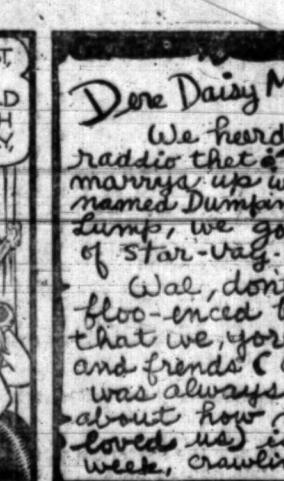 T,
D
H
Y,
Dere Daisy M
We heerd
raddio thet
marryd up w
named Dumpin
Lump, we go
of star-vay-
Wal, don'
floo-enced
that we, yor
and frends (
was always
about how
loved us)
week, crawlin